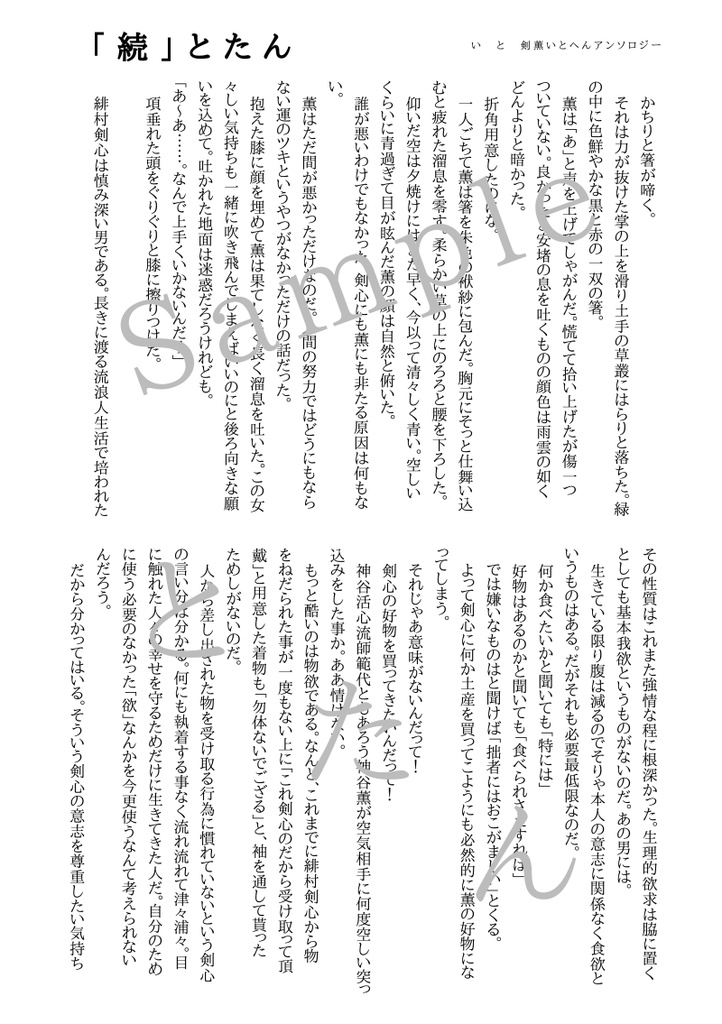 「続」とたん
いと 剣薫いとへんアンソロジー
かちりと箸が啼く。
それは力が抜けた掌の上を滑り土手の草叢にはらりと落ちた。緑
の中に色鮮やかな黒と赤の一双の箸。
薫は「あ」と声を上げてしゃがんだ。慌てて拾い上げたが傷一つ
ついていない。良かったと安堵の息を吐くものの顔色は雨雲の如く
どんよりと暗かった。
折角用意したのにな。
一人ごちて薫は箸を朱色の袱紗に包んだ。胸元にそっと仕舞い込
むと疲れた溜息を零す。柔らかい草の上にのろのろと腰を下ろした。
仰いだ空は夕焼けにはまだ早く、今以って清々しく青い。空しい
くらいに青過ぎて目が眩んだ薫の顔は自然と俯いた。
誰が悪いわけでもなかった。剣心にも薫にも非たる原因は何もな
い。
薫はただ間が悪かっただけなのだ。人間の努力ではどうにもなら
ない運のツキというやつがなかっただけの話だった。
抱えた膝に顔を埋めて薫は果てしなく長く溜息を吐いた。この女
々しい気持ちも一緒に吹き飛んでしまえばいいのにと後ろ向きな願
いを込めて。吐かれた地面は迷惑だろうけれども。
「あ～あ……。なんで上手くいかないんだろ」
項垂れた頭をぐりぐりと膝に擦りつけた。
緋村剣心は慎み深い男である。長きに渡る流浪人生活で培われた
その性質はこれまた強情な程に根深かった。生理的欲求は脇に置く
としても基本我欲というものがないのだ。あの男には。
生きている限り腹は減るのでそりゃ本人の意志に関係なく食欲と
いうものはある。だがそれも必要最低限なのだ。
何か食べたいかと聞いても「特には」
好物はあるのかと聞いても「食べられさえすれば」
では嫌いなものはと聞けば「拙者にはおこがましい」とくる。
よって剣心に何か土産を買ってこようにも必然的に薫の好物にな
ってしまう。
それじゃあ意味がないんだって！
剣心の好物を買ってきたいんだって！
神谷活心流師範代ともあろう神谷薫が空気相手に何度空しい突っ
込みをした事か。ああ情けない。
もっと酷いのは物欲である。なんと、これまでに緋村剣心から物
をねだられた事が一度もない上に「これ剣心のだから受け取って頂
戴」と用意した着物も「勿体ないでござる」と、袖を通して貰った
ためしがないのだ。
人から差し出された物を受け取る行為に慣れていないという剣心
の言い分は分かる。何にも執着する事なく流れ流れて津々浦々。目
に触れた人々の幸せを守るためだけに生きてきた人だ。自分のため
に使う必要のなかった「欲」なんかを今更使うなんて考えられない
んだろう。
だから分かってはいる。そういう剣心の意志を尊重したい気持ち
Sample
とたん